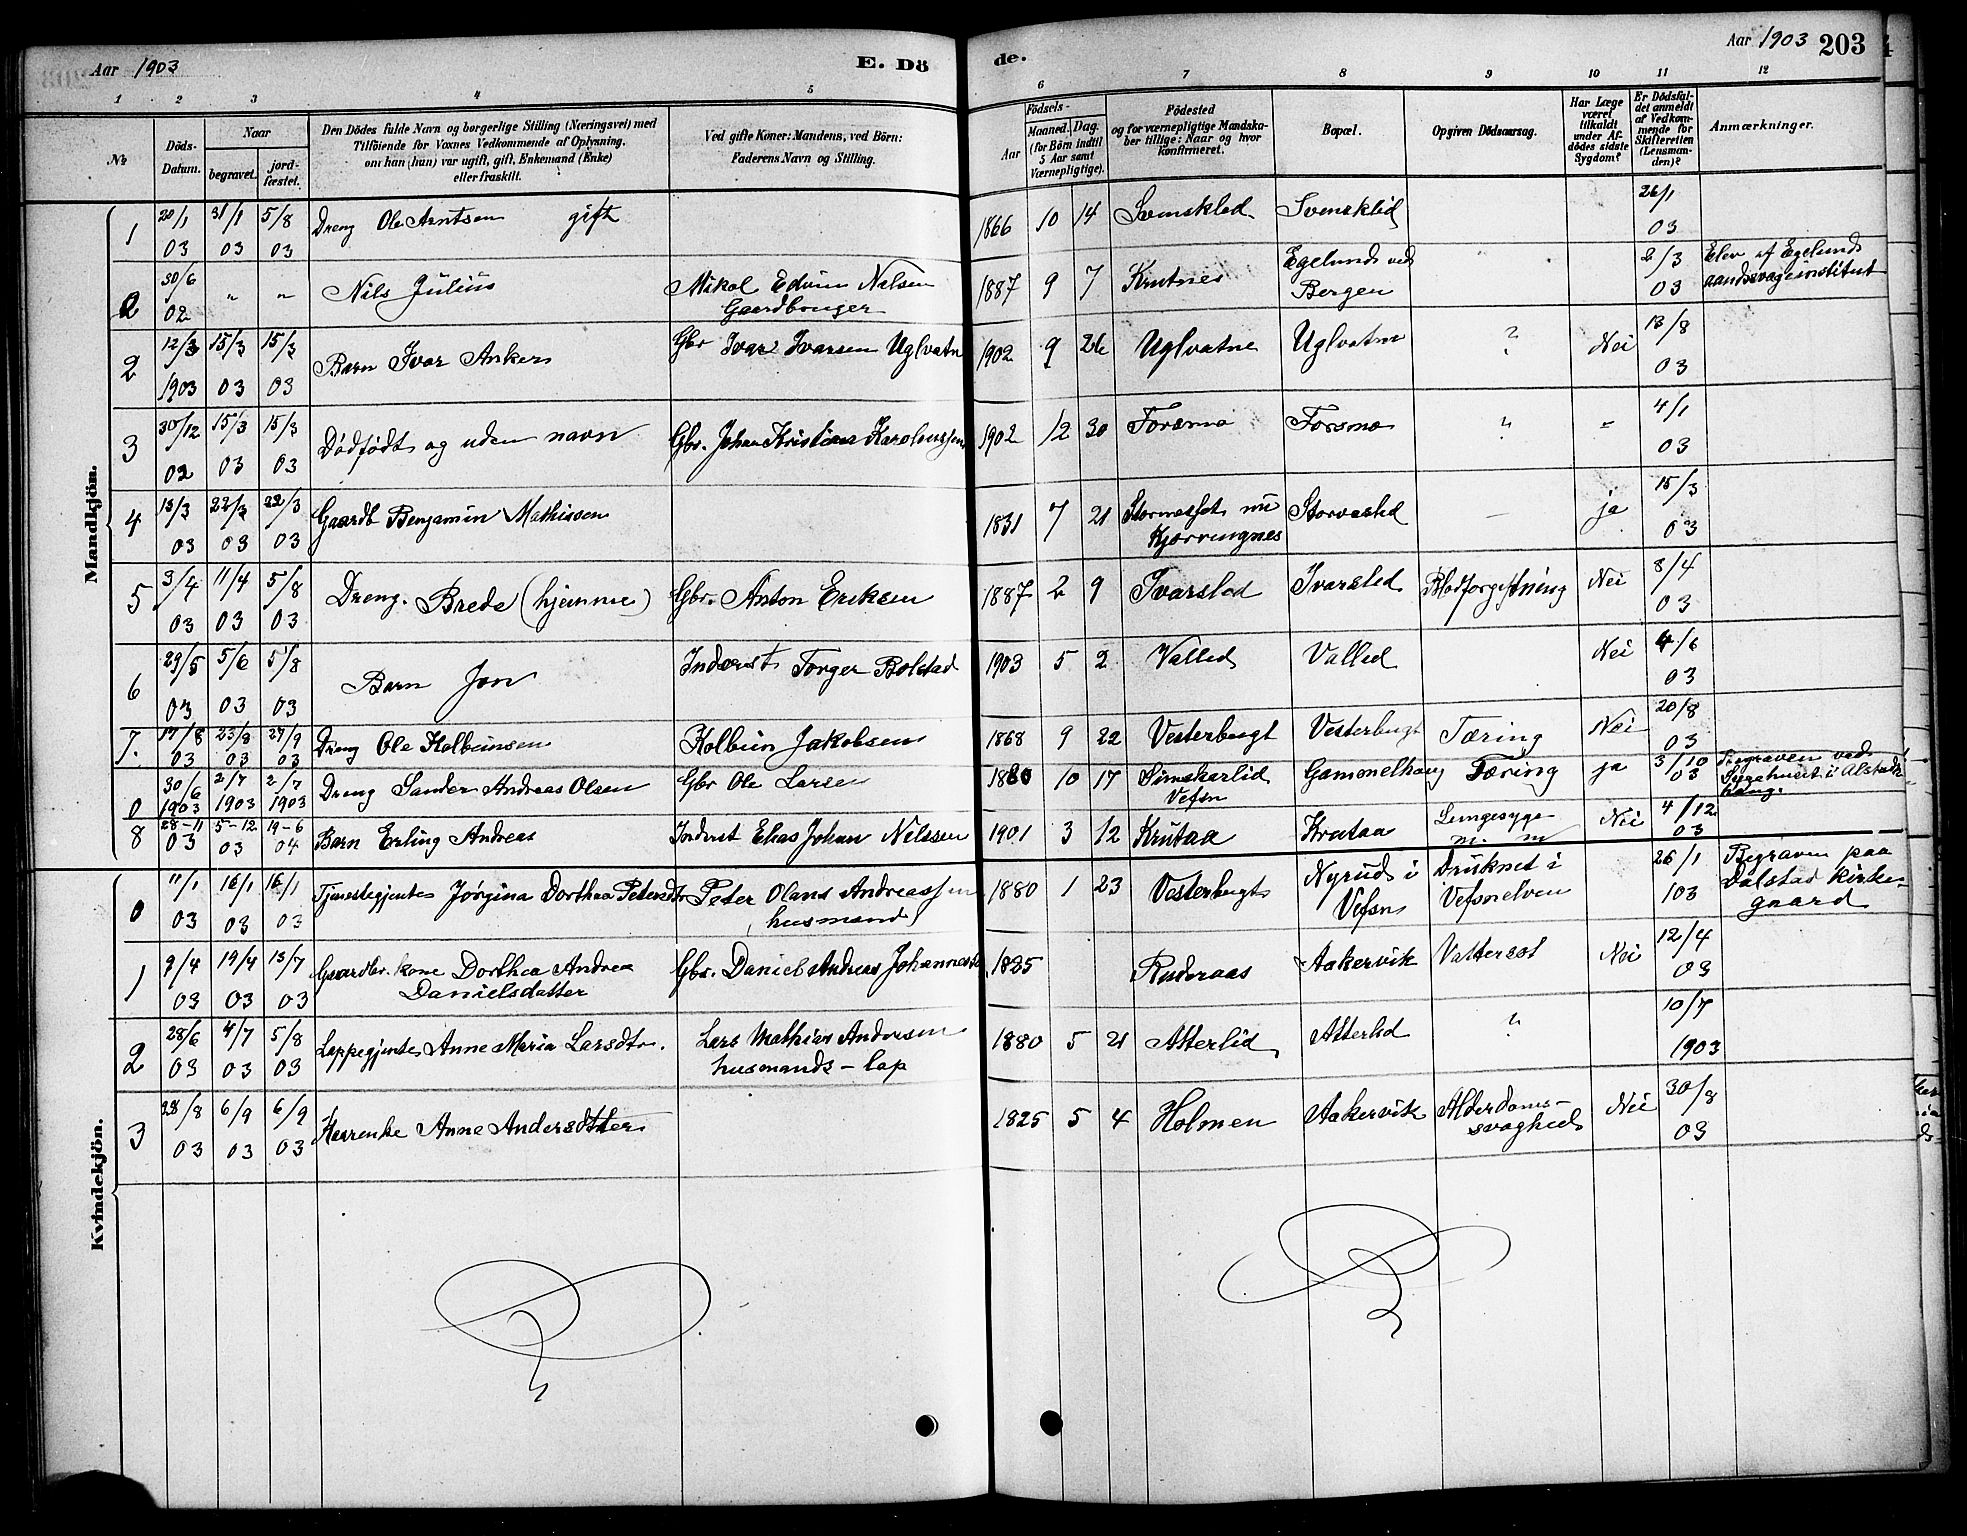 Aar 1903
E. Dö
de.
Aar 1903 203
1 2 3 4 5 6 7 8 9 10 11 12
№
Döds-Datum.
Naar
begravet.
jord-fæstet.
Den Dödes fulde Navn og borgerlige Stilling (Næringsvei) med
Tilföiende for Voxnes Vedkommende af Oplysning,
om han (hun) var ugift, gift, Enkemand (Enke)
eller fraskilt.
Ved gifte Koner: Mandens, ved Börn:
Faderens Navn og Stilling.
Födsels-
Aar
Maaned. Dag.
(for Börn indtil
5 Aar samt
Værnepligtige).
Födested
og for værnepligtige Mandska-
ber tillige: Naar og hvor
konfirmeret.
Bopæl.
Opgiven Dödsaarsag.
Har Læge
været
tilkaldt
under Af-
dödes sidste
Sygdom?
Er Dödsfal-
det anmeldt
af Vedkom-
mende for
Skifteretten
(Lensman-
den)?
Anmærkninger.
Mandkjön.
1 20/1 03 31/1 03 5/8 03 Dreng Ole Arntsen gift 1866 10 14 Svensklid Svensklid 26/1 03
2 30/6 02 " " Nils Julius Mikal Edvin Nilsen Gaardbruger 1887 9 7 Krutnes Egelunds ved Bergen " 2/3 03 Elev af Egelunds aandssvageinstitut
2 12/3 1903 15/3 03 15/3 03 Barn Ivar Anker Gbr Ivar Ivarsen Uglvatn 1902 9 26 Uglvatne Uglvatne ? Nei 18/8 03
3 30/12 02 15/3 03 15/3 03 Dödfödt og uden navn Gbr. Johan Kristian Karolinussen 1902 12 30 Forsmo Forsmo " " 4/1 03
4 13/3 03 22/3 03 22/3 03 Gaardb Benjamin Mathissen 1831 7 21 Stornesset nu Kjærringnes Storvaslid — ja 15/3 03
5 3/4 03 11/4 03 5/8 03 Dreng. Brede (hjemme) Gbr. Anton Eriksen 1887 2 9 Ivarslid Ivarslid Blodforgiftning Nei 8/4 03
6 29/5 03 5/6 03 5/8 03 Barn Jon Inderst Torger Bolstad 1903 5 2 Vallid Vallid Nei 4/6 03
7. 17/8 03 23/8 03 27/9 03 Dreng Ole Kolbeinsen Kolbein Jakobsen 1868 9 22 Vesterbugt Vesterbugt Tæring Nei 20/8 03
0 30/6 1903 2/7 1903 2/7 1903 Dreng Sander Andreas Olsen Gbr Ole Larsen 1880 10 17 Simskarlid Vefsn Gammelhaug Tæring ja 3/10 03 Begraven ved Sygehuset i Alstadhaug.
8 28-11 03 5-12 03 19-6 04 Barn Erling Andreas Inderst Elias Johan Nilssen 1901 3 12 Krutaa Krutaa Lungesyge m. m Nei 4/12 03
Kvindekjön.
0 11/1 03 16/1 03 16/1 03 Tjenestegjente Jörgina Dorthea Petersdtr Peter Olaus Andreassen husmand 1880 1 23 Vesterbugt Nyrud i Vefsn Druknet i Vefsnelven 26/1 103 Begraven paa Dolstad kirkegaard
1 9/4 03 19/4 03 13/7 03 Gaardbr. kone Dorthea Andrea Danielsdatter Gbr. Daniel Andreas Johannesen 1825 Ruderaas Aakervik Vattersot Nei 12/4 03
2 28/6 03 4/7 03 5/8 03 Lappegjente Anne Maria Larsdtr. Lars Mathias Andersen husmands-lap 1880 5 21 Atterlid Atterlid ? 10/7 1903
3 28/8 03 6/9 03 6/9 03 Kaarenke Anne Andersdtter 1825 5 4 Holmen Aakervik Alderdoms-svaghed Nei 30/8 03